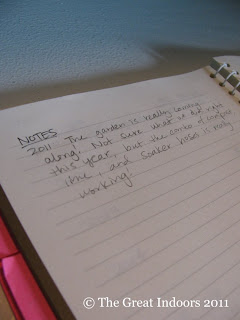 NOTES
2011 The garden is really coming
along! Not sure what did right
this year, but the combo of compost
lime, and soaker hoses is really
working!
© The Great Indoors 2011